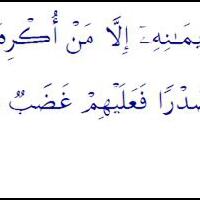 يمَـٰنِهِۦٓ إِلَّا مَنْ أُكْرِهَ
صَدْرًا فَعَلَيْهِمْ غَضَبٌ